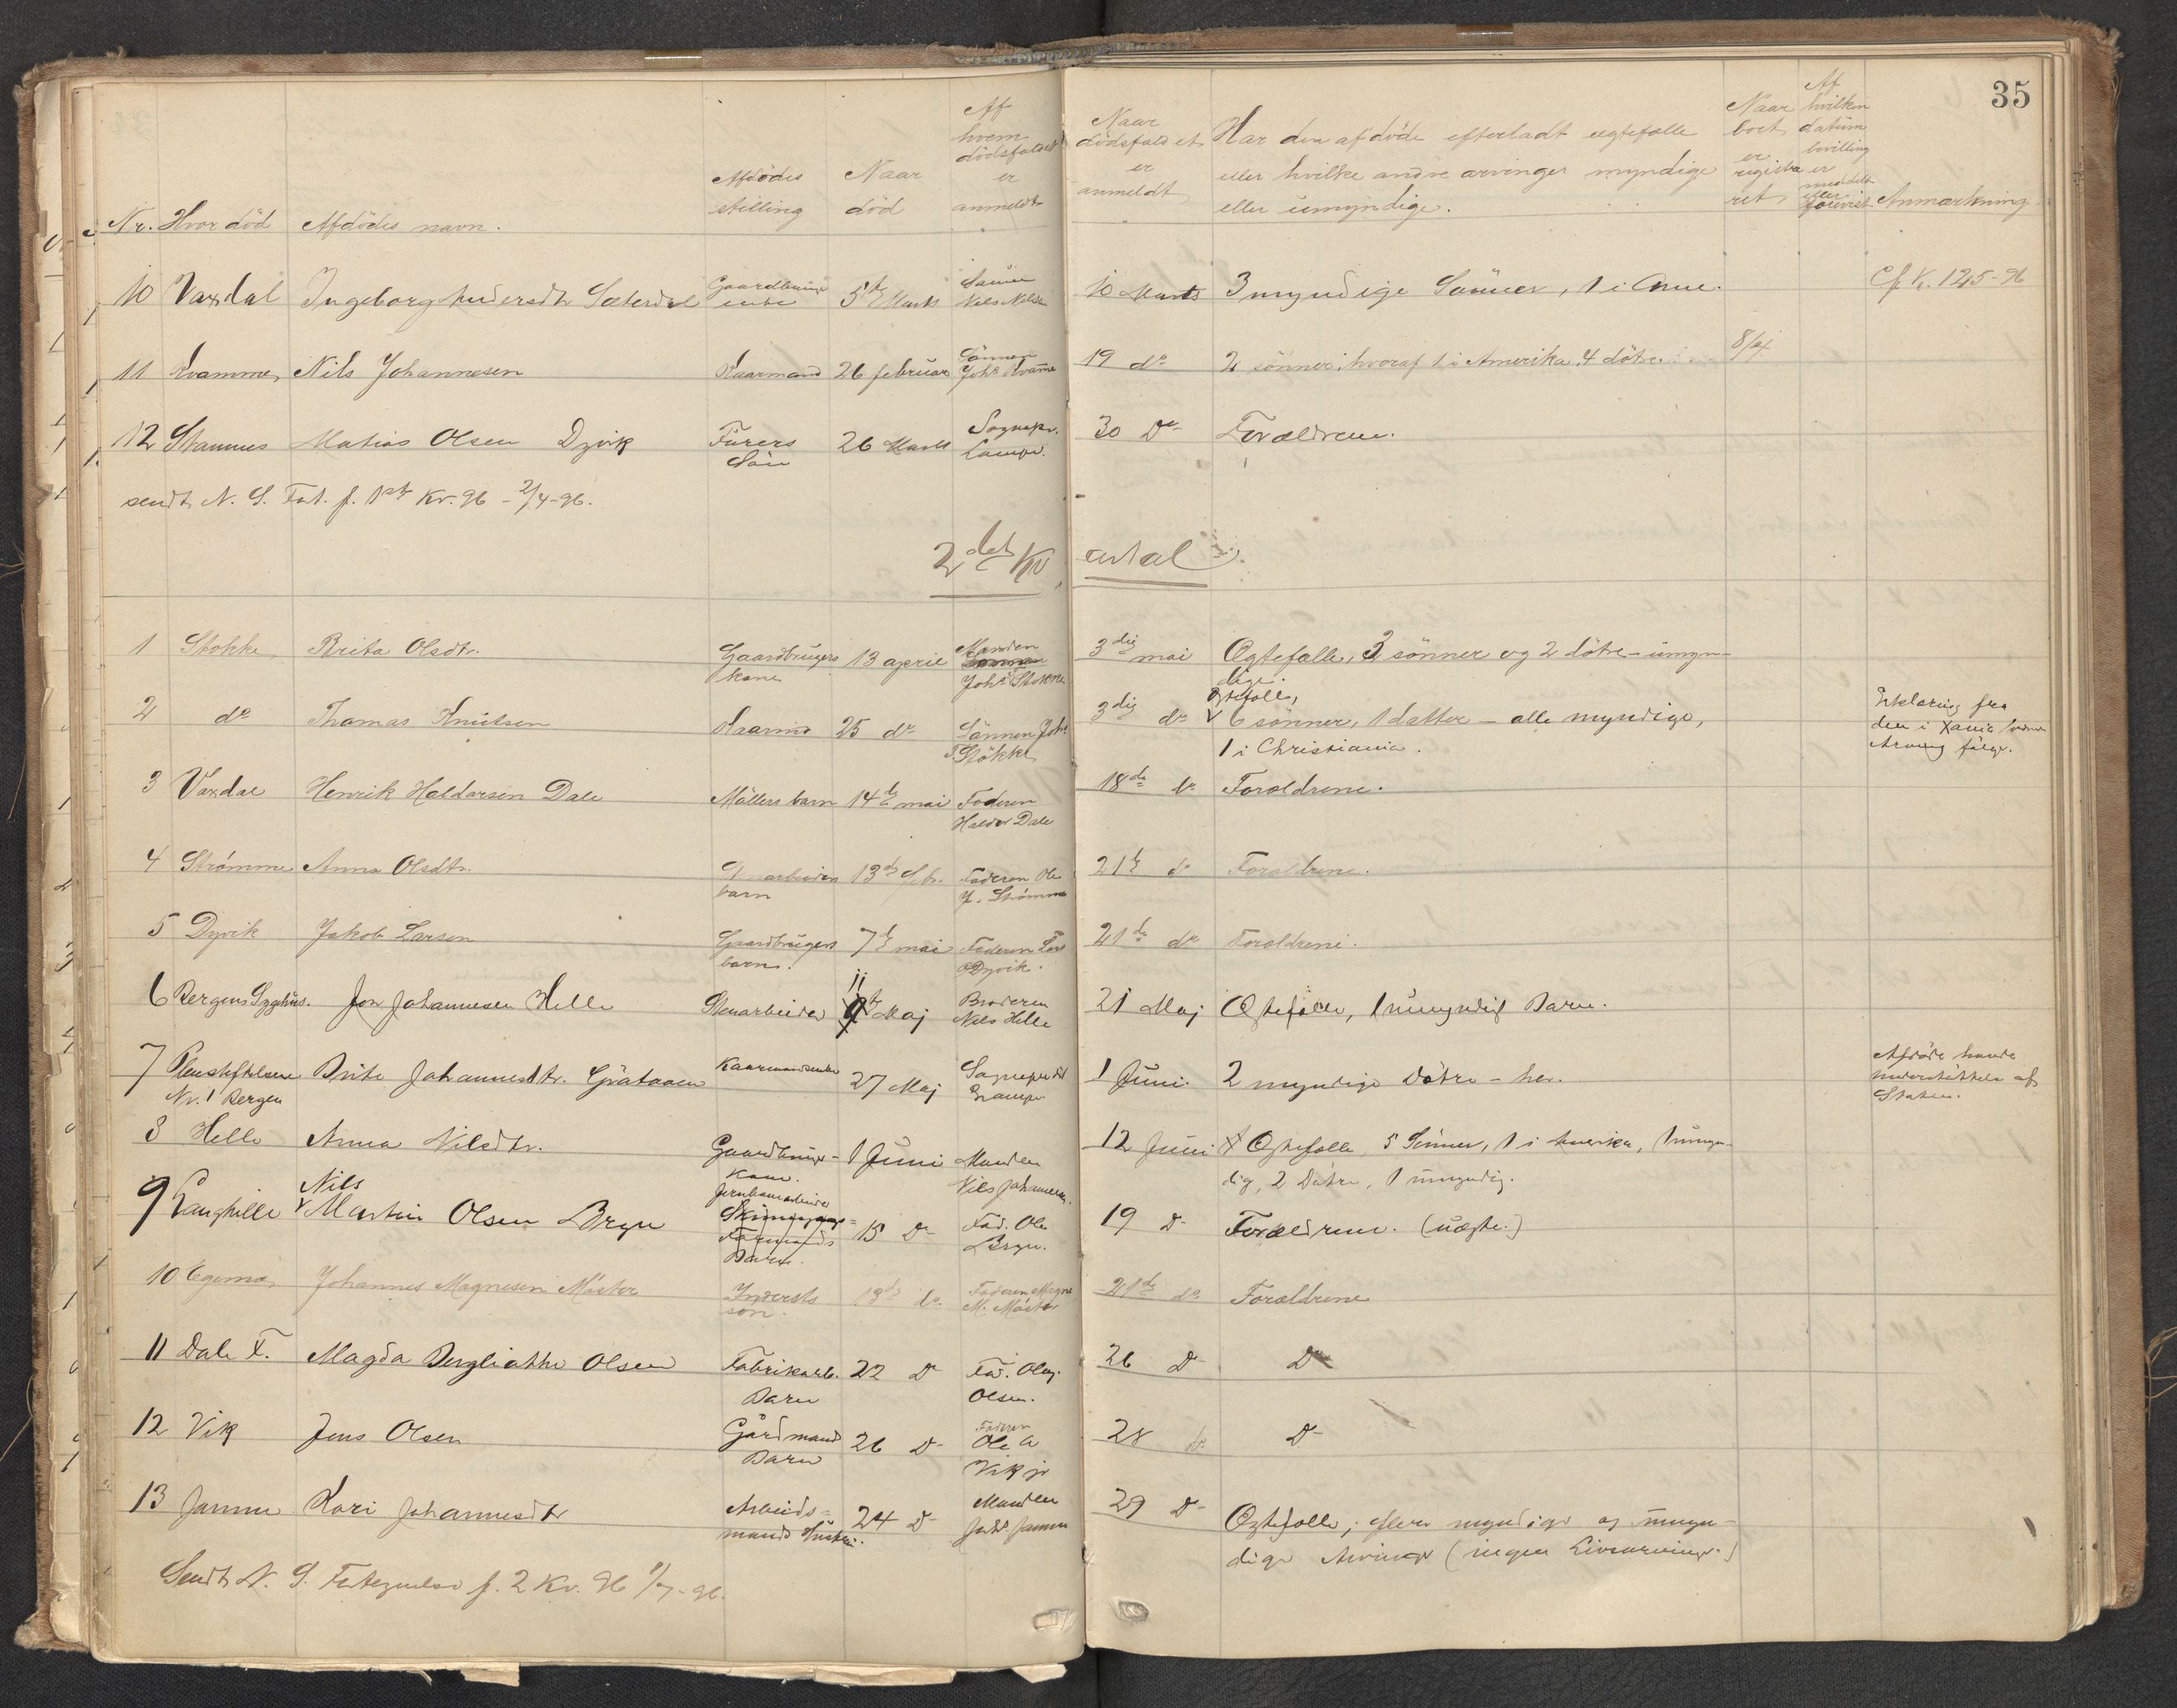 35
Nr. Hvor död Afdödes navn. Afdödes stilling Naar död Af hvem dödsfaldet er anmeldt Naar dödsfaldet er anmeldt Har den afdöde efterladt ægtefælle eller hvilke andre arvinger myndige eller umyndige. Naar boet er registreret Af hvilken datum bevilling er meddelt eller forevist Anmærkning
10 Vaxdal Ingeborg Andersdtr Sæterdal Gaardbruger enke 5te Marts Sönnen Nils Nilsen 10 Marts 3 myndige Sönner, 1 i Ame. Cf. K. 125-96
11 Kvamme, Nils Johannesen Kaarmand 26 februar Sönnen Johs Kvamme 19 do 2 sönner, hvoraf 1 i Amerika, 4 dötre.
12 Stamnes Matias Olsen Dyvik Furers Sön 26 Marts Sognepr. Lampe. 30 Do Forældrene.
sendt N. S. Fort. f. 1ste Kv. 96 - 2/4-96.
2det Kvartal
1 Stokke Brita Olsdtr. Gaardbrugers kone 13 april Manden Johs Stokke 3die mai Ægtefælle, 3 sönner og 2 dötre - umyndige.
2 do Thomas Knutsen Kaarmd 25 do Sönnen Johs Stökke 3die do Ægtefælle, 6 sönner, 1 datter - alle myndige, 1 i Christiania. Erklæring fra den i Xania Arving fölger.
3 Vaxdal Henrik Haldorsen Dale Möllers barn 14de mai Faderen Haldor Dale 18de do Forældrene.
4 Strömme Anna Olsdtr. barn 13de Febr. Faderen Ole J. Strömme 21de do Forældrene.
5 Dyvik Jakob Larsen Gaardbrugers barn. 7de mai Faderen Lars Dyvik. 21de do Forældrene.
6 Bergens Sygehus. Jon Johannesen Helle Stenarbeider 11 Maj Broderen Nils Helle 21 Maj Ægtefælle, 1 umyndig Barn.
7 Pleiestiftelsen Nr. 1 Bergen Brite Johannesdtr. Gråtaaen Kaarmandsenke 27 Maj Sognepræst Lampe 1 Juni. 2 myndige Dötre - her. Afdöde havde understöttelse af Staten.
8 Helle Anna Nilsdtr. Gaardbruger-kone. 1 Juni Manden Nils Johannesen. 12 Juni Ægtefælle, 5 Sönner, 1 i Amerika, 1 umyndig, 2 Dötre, 1 umyndig.
9 Langhelle Nils Martin Olsen Bryn Jernbanearbeider Barn. 15 Do Fad. Ole Bryn. 19 D Forældrene. (uægte.)
10 Johannes Magnesen Mäster Inderstsön. 18de do. Faderen Magne M. Mäster 21de do Forældrene
11 Dale F. Magda Bergliothe Olsen Fabrikarb. Barn 22 D Fad. Olaj Olsen. 26 D D
12 Vik Jens Olsen Gårdmand Barn 26 D Faderen Ole A Vik jr 28 do D
13 Jamne Kari Johannesdtr Arbeidsmands Hustru. 24 D Manden Johs. Jamne 29 D Ægtefælle; flere myndige og umyndige Arvinger (ingen Livsarvinger.)
Sendt N. S. Fortegnelse f. 2 Kv. 96 1/7-96.